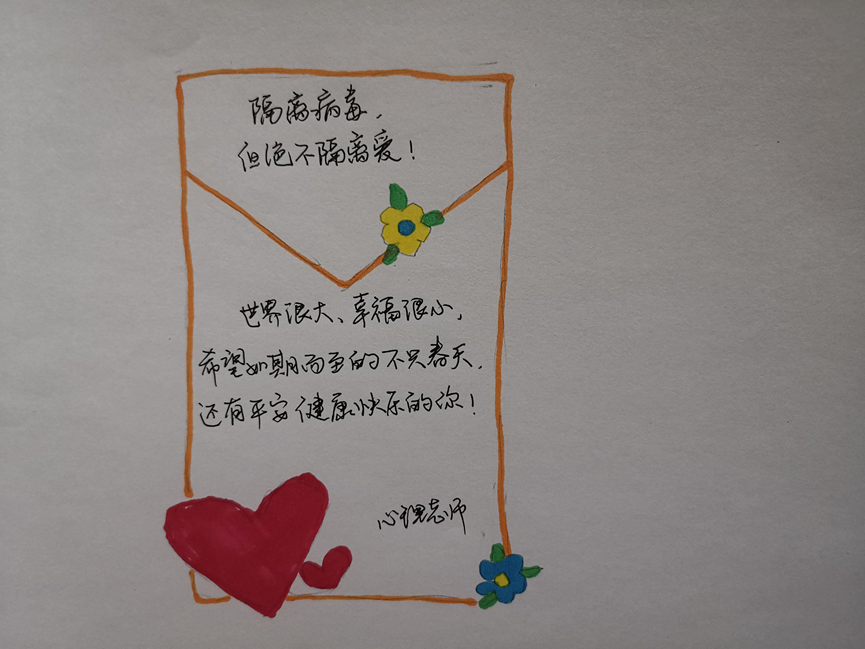 隔离病毒,
但绝不隔离爱!
世界很大、幸福很小,
希望如期而至的不只春天,
还有平安健康快乐的你!
心理老师